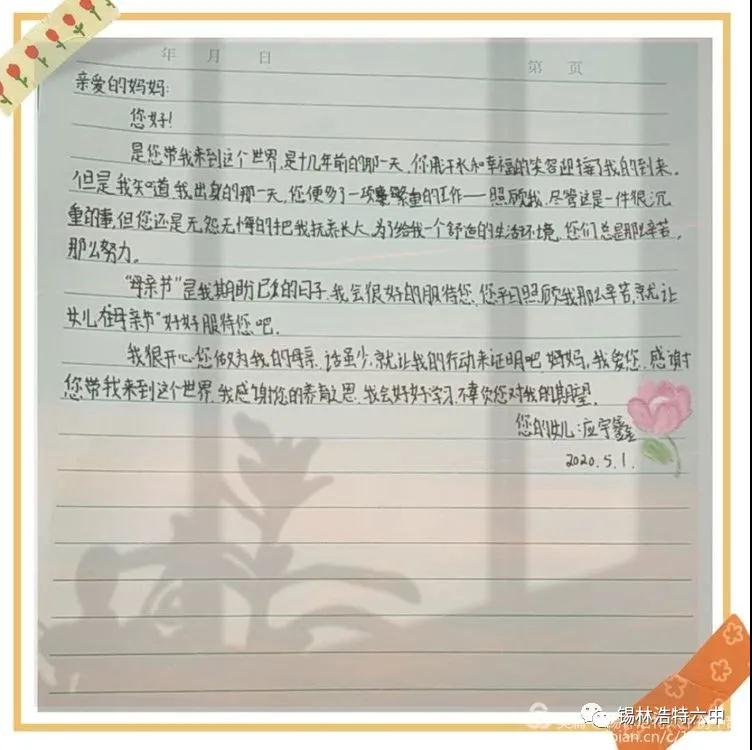 年 月 日 第 页
亲爱的妈妈:
您好!
是您带我来到这个世界,是十几年前的那一天,你用汗水和幸福的笑容迎接了我的到来。
但是我知道我出身的那一天,您便多了一项繁重的工作——照顾我,尽管这是一件很沉
重的事,但您还是无怨无悔的把我抚养长大,为了给我一个舒适的生活环境,您们总是那么辛苦,
那么努力。
“母亲节”是我期盼已久的日子,我会很好的服侍您,您平日照顾我那么辛苦,就让
女儿在“母亲节”好好服侍您吧。
我很开心您做为我的母亲,话虽少,就让我的行动来证明吧,妈妈,我爱您,感谢
您带我来到这个世界,我感谢您的养育之恩,我会好好学习,不辜负您对我的期望。
您的女儿:应宇鑫
2020.5.1.
锡林浩特六中